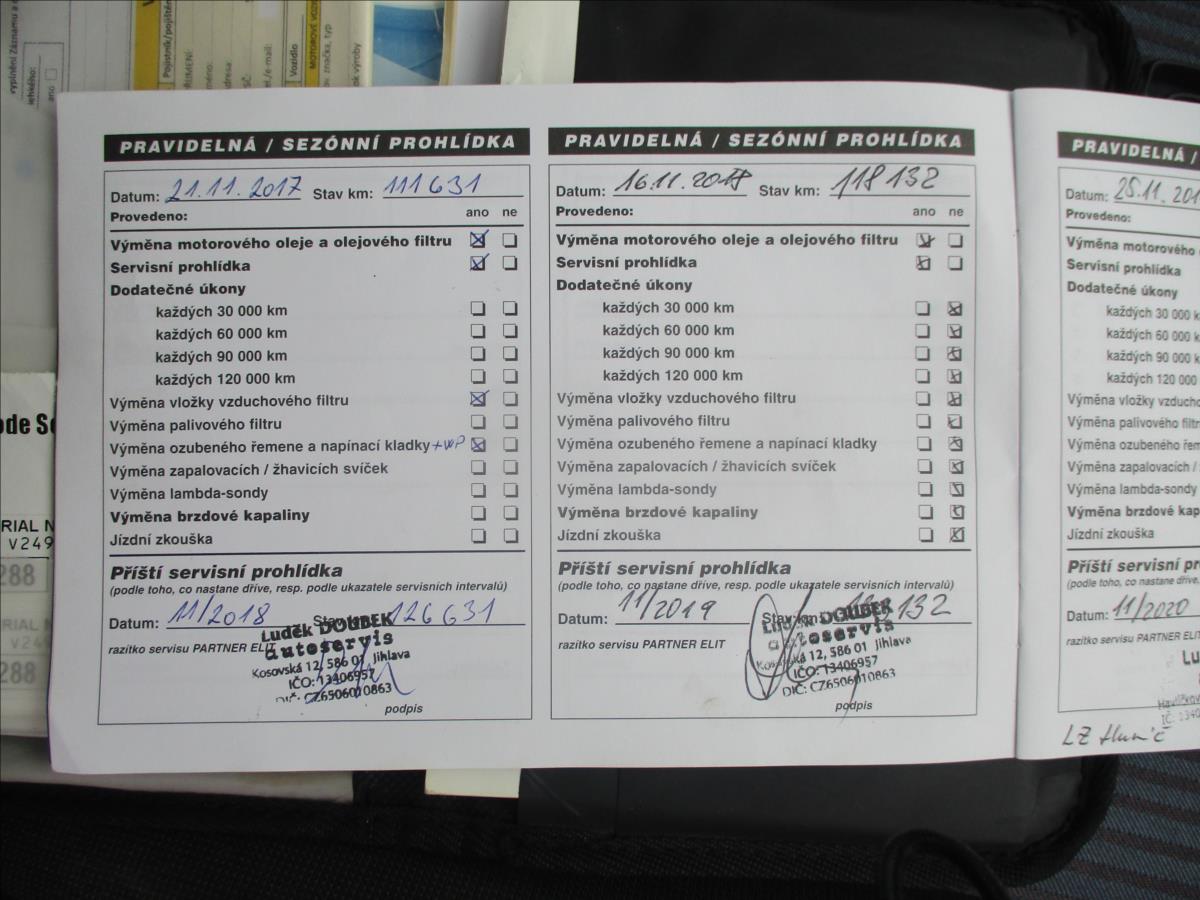 vyplnění Záznamu o
ano
Pojistník/pojištěn
Vozidlo
MOTOROVÉ VOZ
značka, typ
rok výroby
ode Se
RIAL N
V249
288
RIAL N
V249
288
PRAVIDELNÁ / SEZÓNNÍ PROHLÍDKA
Datum: 21.11.2017 Stav km: 111631
Provedeno: ano ne
Výměna motorového oleje a olejového filtru
Servisní prohlídka
Dodatečné úkony
každých 30 000 km
každých 60 000 km
každých 90 000 km
každých 120 000 km
Výměna vložky vzduchového filtru
Výměna palivového filtru
Výměna ozubeného řemene a napínací kladky +WP
Výměna zapalovacích / žhavicích svíček
Výměna lambda-sondy
Výměna brzdové kapaliny
Jízdní zkouška
Příští servisní prohlídka
(podle toho, co nastane dříve, resp. podle ukazatele servisních intervalů)
Datum: 11/2018 126631
razítko servisu PARTNER ELIT
Luděk DOUBEK
autoservis
Kosovská 12, 586 01 Jihlava
IČO: 13406957
DIČ: CZ6506010863
podpis
PRAVIDELNÁ / SEZÓNNÍ PROHLÍDKA
Datum: 16.11.2018 Stav km: 118132
Provedeno: ano ne
Výměna motorového oleje a olejového filtru
Servisní prohlídka
Dodatečné úkony
každých 30 000 km
každých 60 000 km
každých 90 000 km
každých 120 000 km
Výměna vložky vzduchového filtru
Výměna palivového filtru
Výměna ozubeného řemene a napínací kladky
Výměna zapalovacích / žhavicích svíček
Výměna lambda-sondy
Výměna brzdové kapaliny
Jízdní zkouška
Příští servisní prohlídka
(podle toho, co nastane dříve, resp. podle ukazatele servisních intervalů)
Datum: 11/2019 Stav km: 132
razítko servisu PARTNER ELIT
Luděk DOUBEK
autoservis
Kosovská 12, 586 01 Jihlava
IČO: 13406957
DIČ: CZ6506010863
podpis
PRAVIDELNÁ /
Datum: 25.11.201
Provedeno:
Výměna motorového o
Servisní prohlídka
Dodatečné úkony
každých 30 000 k
každých 60 000 k
každých 90 000 k
každých 120 000
Výměna vložky vzducho
Výměna palivového filtr
Výměna ozubeného řem
Výměna zapalovacích /
Výměna lambda-sondy
Výměna brzdové kap
Jízdní zkouška
Příští servisní pr
(podle toho, co nastane dříve,
Datum: 11/2020
razítko servisu PARTNER EL
Lu
Havlíčkov
IČ: 1340
LZ